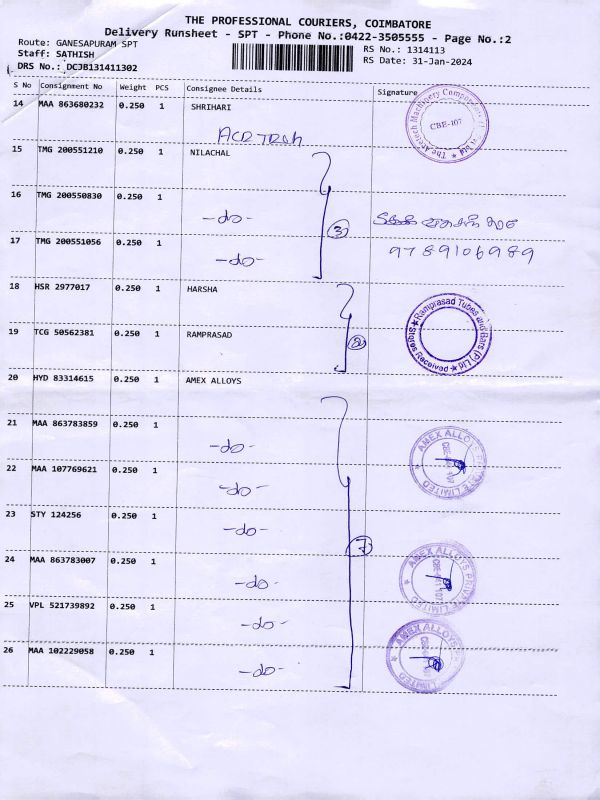 THE PROFESSIONAL COURIERS, COIMBATORE
Delivery Runsheet - SPT - Phone No.:0422-3505555 - Page No.:2
Route: GANESAPURAM SPT
RS No.: 1314113
Staff: SATHISH
RS Date: 31-Jan-2024
DRS No.: DCJB131411302
S No Consignment No Weight PCS Consignee Details Signature
14 MAA 863680232 0.250 1 SHRIHARI
CBE-107
15 TMG 200551210 0.250 1 NILACHAL
16 TMG 200550830 0.250 1
-do-
3
17 TMG 200551056 0.250 1
-do-
9789106989
18 HSR 2977017 0.250 1 HARSHA
Ramprasad Tubes and Bars (P) Ltd
Stores Received
2
19 TCG 50562381 0.250 1 RAMPRASAD
20 HYD 83314615 0.250 1 AMEX ALLOYS
21 MAA 863783859 0.250 1
-do-
AMEX ALLOYS PRIVATE LIMITED
22 MAA 107769621 0.250 1
-do-
23 STY 124256 0.250 1
-do-
7
24 MAA 863783007 0.250 1
-do-
AMEX ALLOYS PRIVATE LIMITED
25 VPL 521739892 0.250 1
-do-
26 MAA 102229058 0.250 1
-do-
AMEX ALLOYS PRIVATE LIMITED